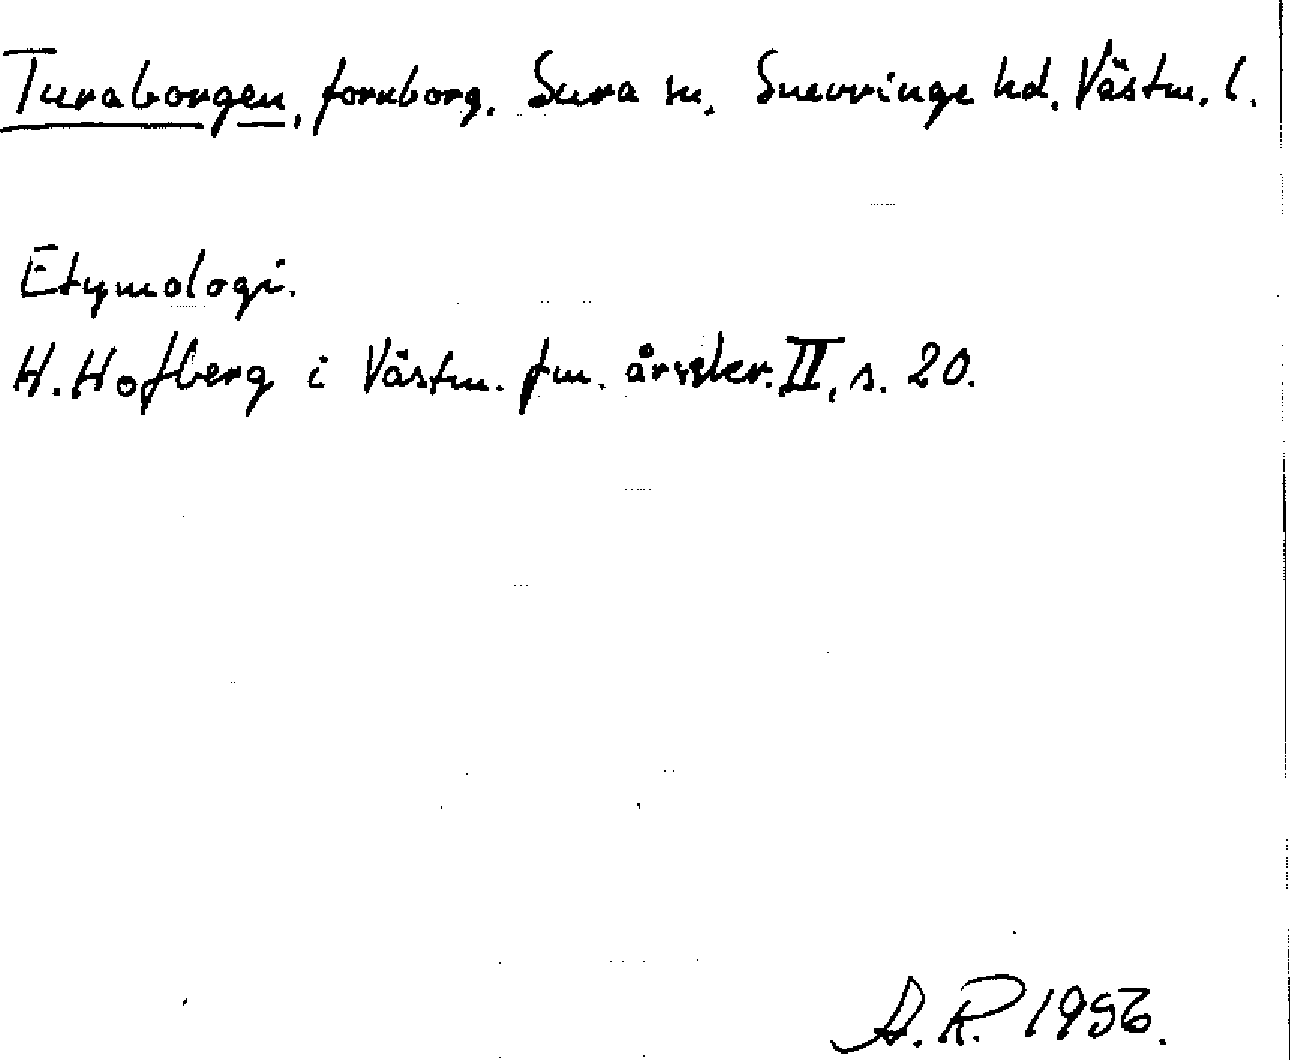 Turaborgen, fornborg. Sura sn, Snevringe hd. Västm. l.
Etymologi.
H. Hofberg i Västm. fm. årsskr. II, s. 20.
A.R. 1956.